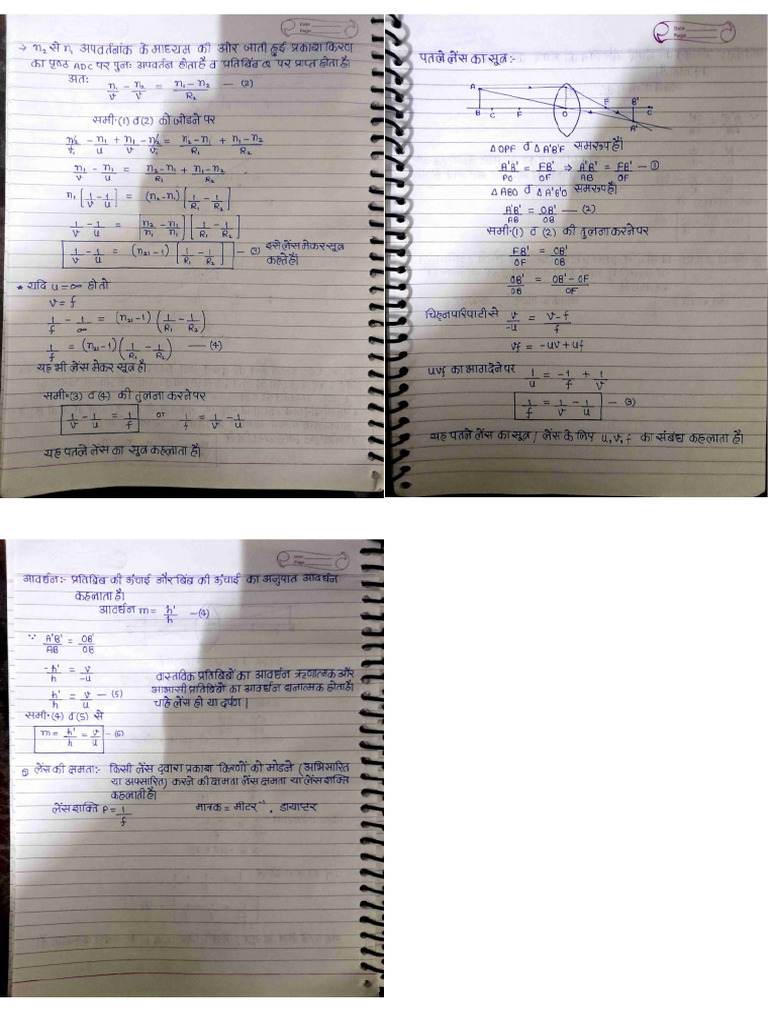 Date
Page
→ n₂ से n₁ अपवर्तनांक के माध्यम की ओर जाती हुई प्रकाश किरण
का पृष्ठ ADC पर पुनः अपवर्तन होता है व प्रतिबिंब Q पर प्राप्त होता है।
अतः
n₁/v - n₂/v' = (n₁-n₂)/R₂ — (2)
समी.(1) व (2) को जोडने पर
n₂/v' - n₁/u + n₁/v - n₂/v' = (n₂-n₁)/R₁ + (n₁-n₂)/R₂
n₁/v - n₁/u = (n₂-n₁)/R₁ + (n₁-n₂)/R₂
n₁[1/v - 1/u] = (n₂-n₁)[1/R₁ - 1/R₂]
1/v - 1/u = [n₂/n₁ - n₁/n₁][1/R₁ - 1/R₂]
1/v - 1/u = (n₂₁-1)[1/R₁ - 1/R₂] — (3) इसे लेंस मेकर सूत्र
कहते है।
* यदि u = ∞ हो तो
v = f
1/f - 1/∞ = (n₂₁-1)(1/R₁ - 1/R₂)
1/f = (n₂₁-1)(1/R₁ - 1/R₂) — (4)
यह भी लेंस मेकर सूत्र है।
समी.(3) व (4) की तुलना करने पर
1/v - 1/u = 1/f or 1/f = 1/v - 1/u
यह पतले लेंस का सूत्र कहलाता है।
Date
Page
पतले लेंस का सूत्र :-
A P
B C F O F B' C
A'
Δ OPF व Δ A'B'F समरूप है।
A'B'/PO = FB'/OF ⇒ A'B'/AB = FB'/OF — ①
Δ ABO व Δ A'B'O समरूप है।
A'B'/AB = OB'/OB — (2)
समी.(1) व (2) की तुलना करने पर
FB'/OF = OB'/OB
OB'/OB = (OB'-OF)/OF
चिह्न परिपाटी से v/-u = (v-f)/f
vf = -uv + uf
uvf का भाग देने पर 1/u = -1/f + 1/v
1/f = 1/v - 1/u — (3)
यह पतले लेंस का सूत्र / लेंस के लिए u, v, f का संबंध कहलाता है।
Date
Page
आवर्धन :- प्रतिबिंब की ऊंचाई और बिंब की ऊंचाई का अनुपात आवर्धन
कहलाता है।
आवर्धन m = h'/h — (4)
∵ A'B'/AB = OB'/OB
-h'/h = v/-u
वास्तविक प्रतिबिंबों का आवर्धन ऋणात्मक और
h'/h = v/u — (5) आभासी प्रतिबिंबों का आवर्धन धनात्मक होता है।
चाहे लेंस हो या दर्पण।
समी.(4) व (5) से
m = h'/h = v/u — (6)
लेंस की क्षमता :- किसी लेंस द्वारा प्रकाश किरणों को मोडने (अभिसारित
या अपसारित) करने की क्षमता लेंस क्षमता या लेंस शक्ति
कहलाती है।
लेंस शक्ति P = 1/f मात्रक = मीटर⁻¹, डायाप्टर